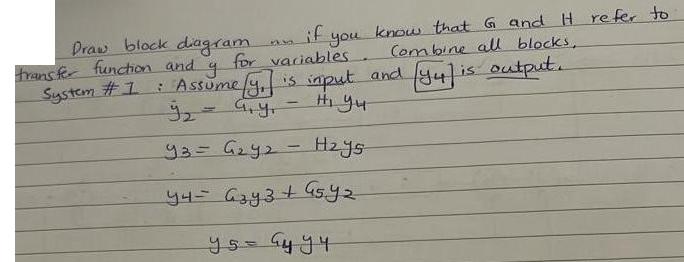 Draw block diagram if you know that G and H refer to
transfer function and y for variables. Combine all blocks.
System #1 : Assume y₁ is input and y4 is output.
ẏ₂ = G₁y₁ - H₁y4
y3 = G2y2 - H2y5
y4 = G3y3 + G5y2
y5 = G4y4